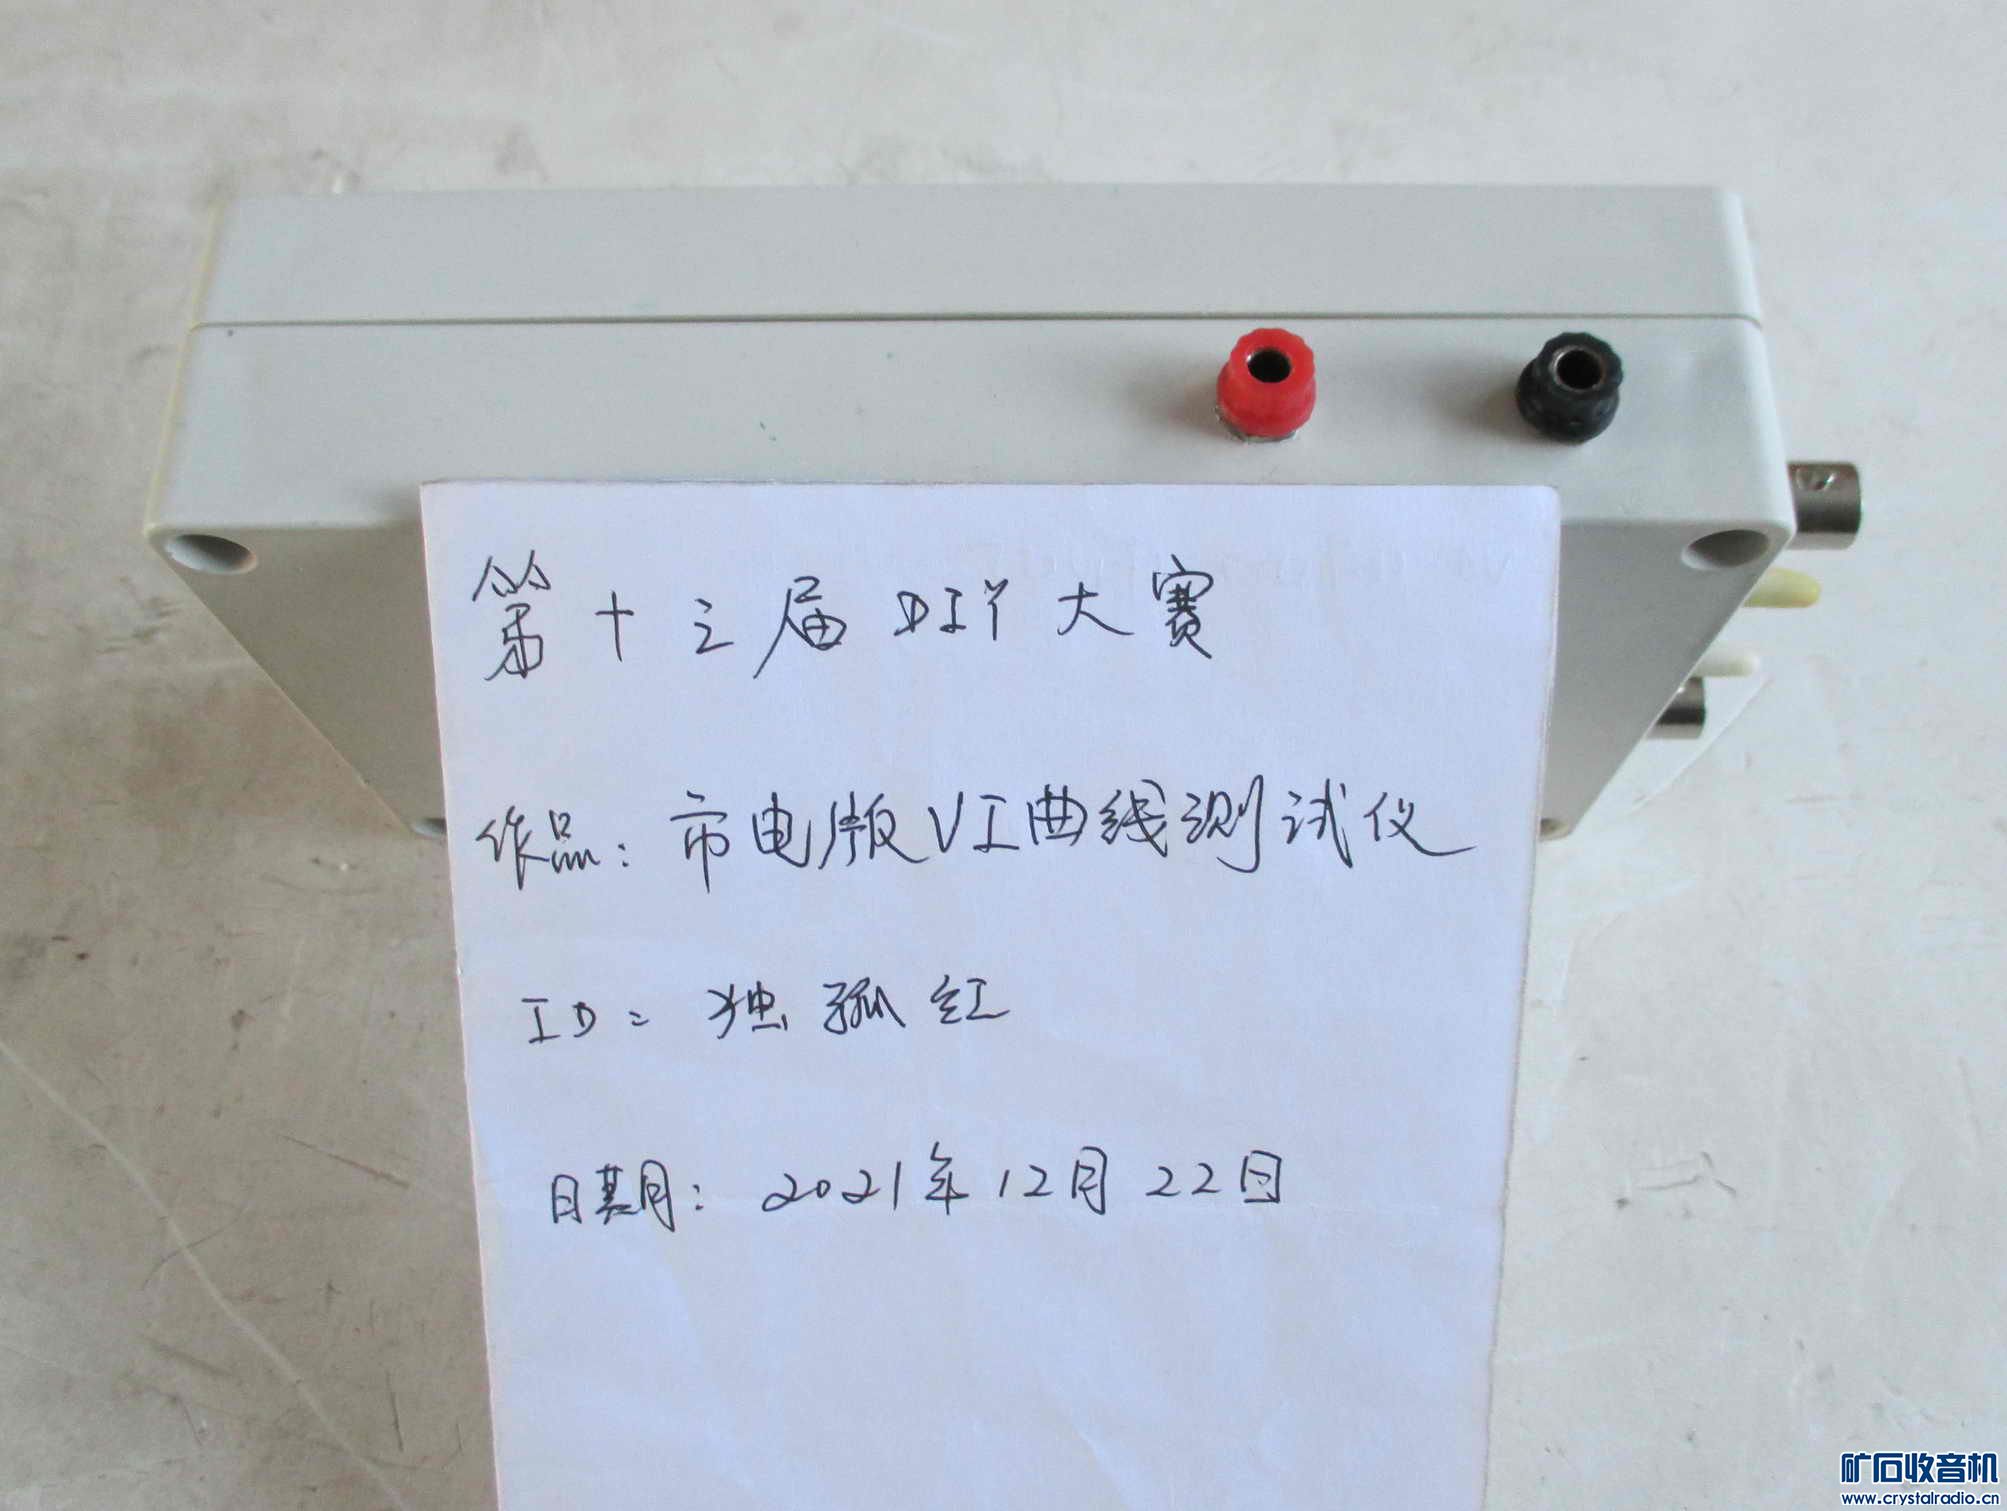 第十三届DIY大赛
作品：市电版VI曲线测试仪
ID：独孤红
日期：2021年12月22日
矿石收音机
www.crystalradio.cn